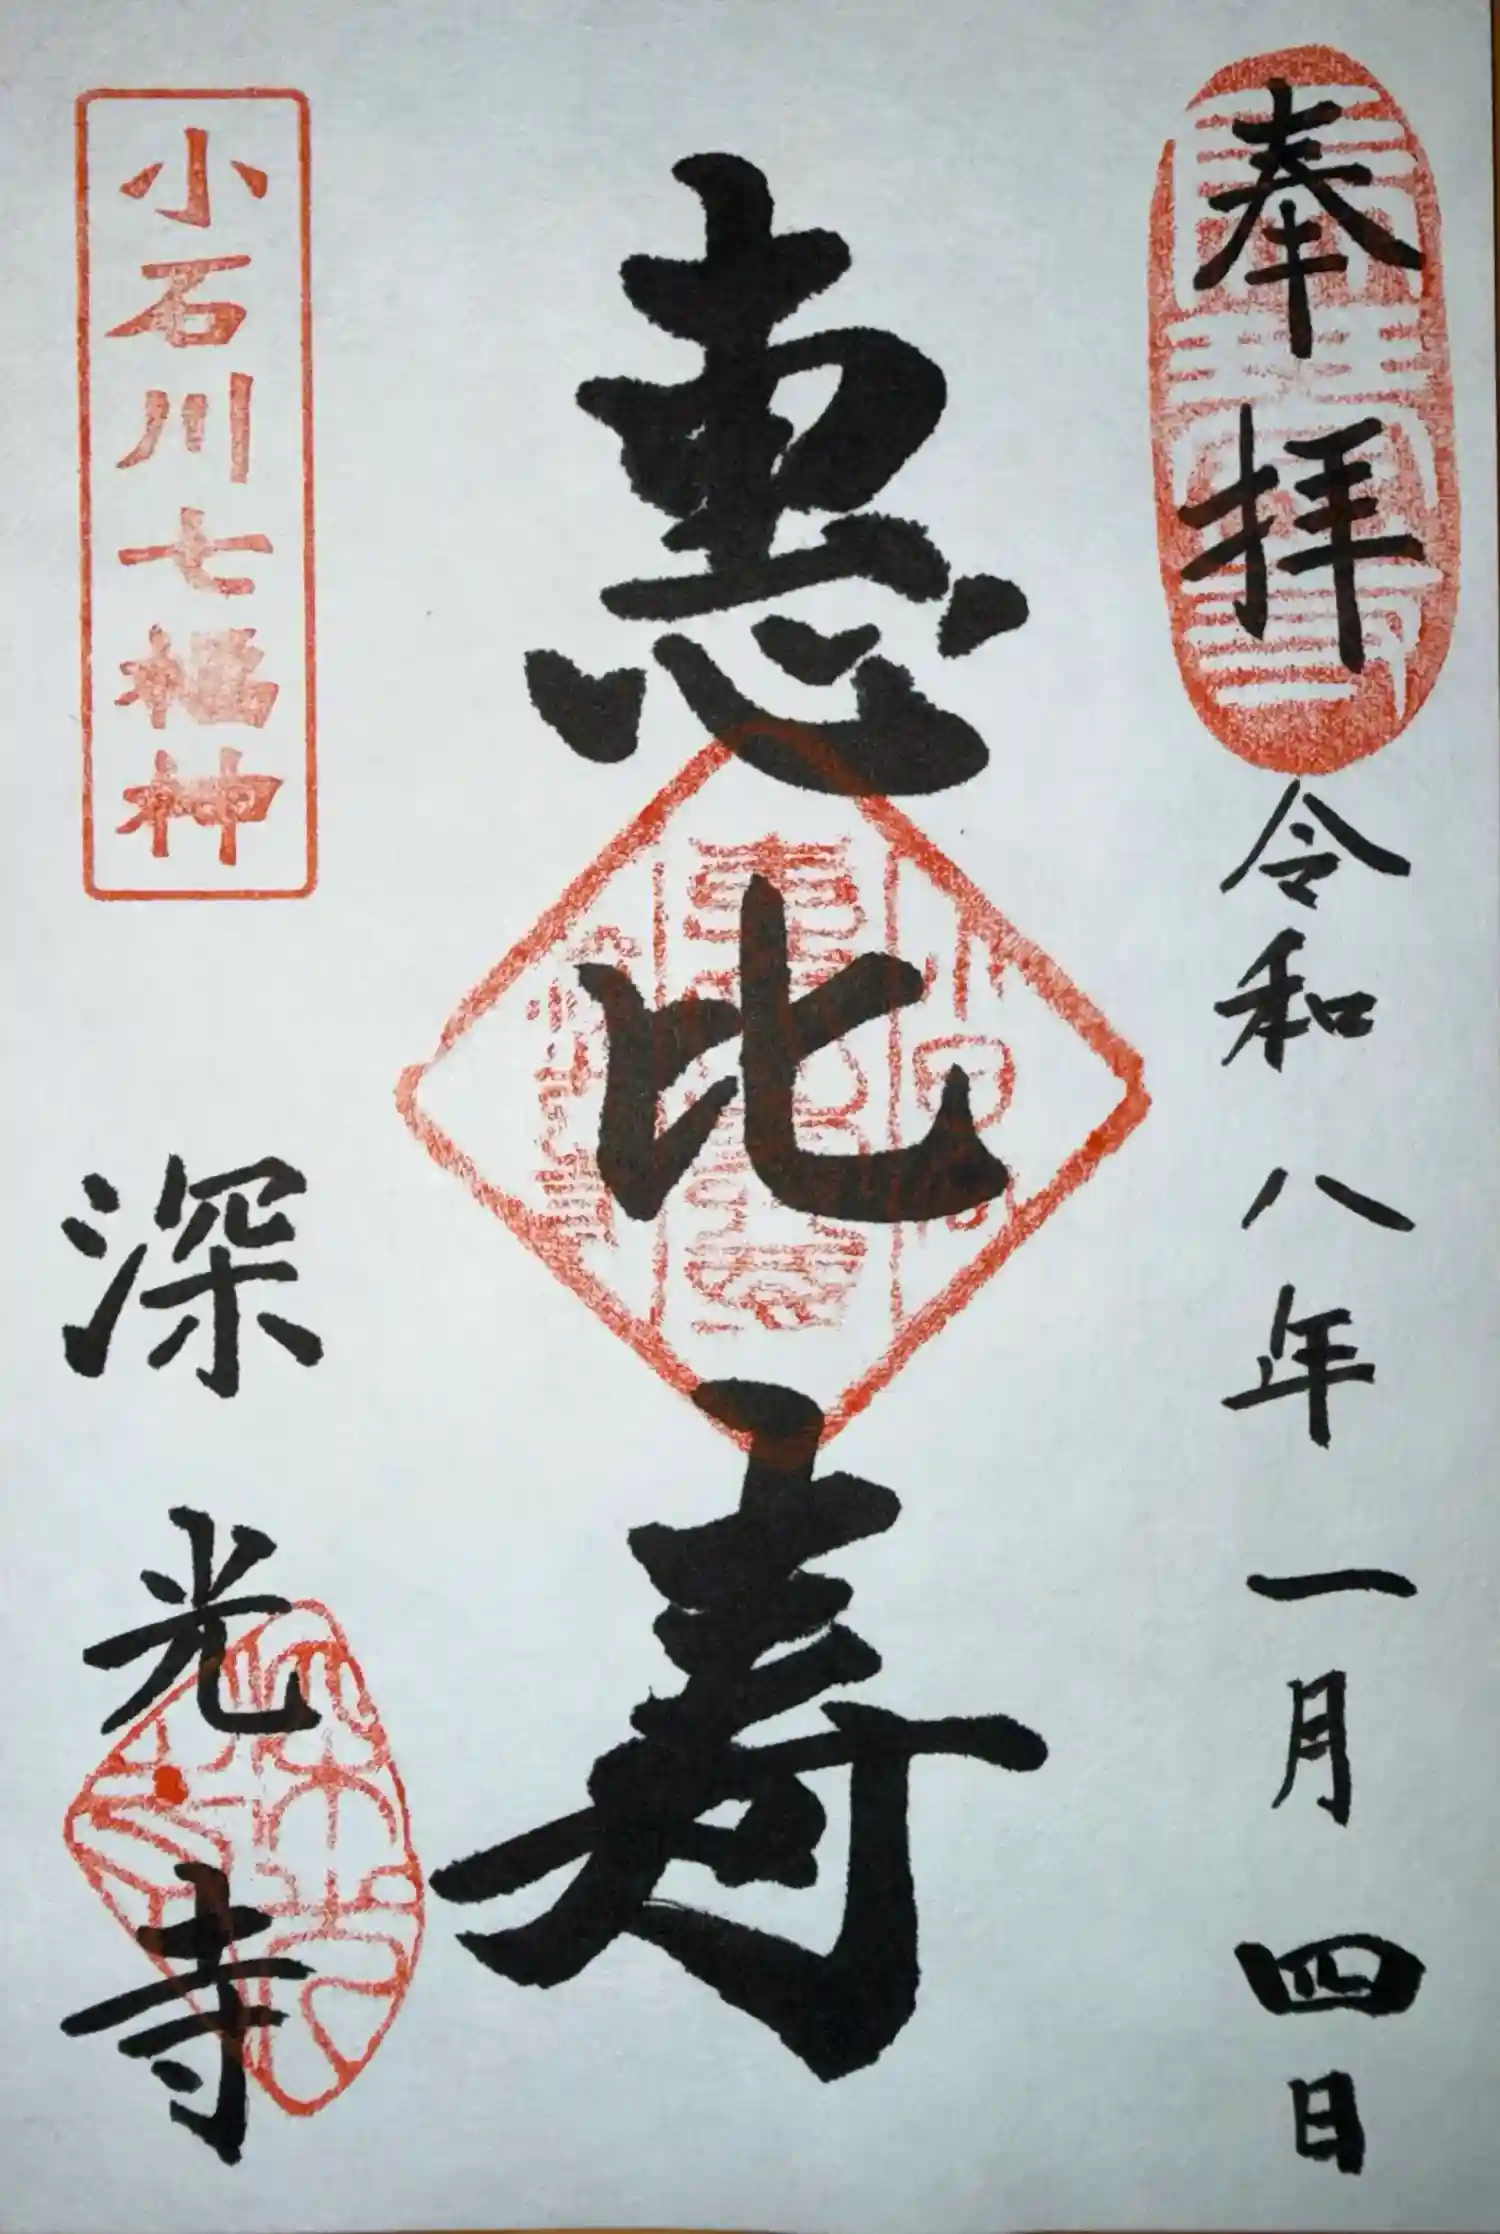 奉拝
令和八年一月四日
恵比寿
小石川七福神
深光寺